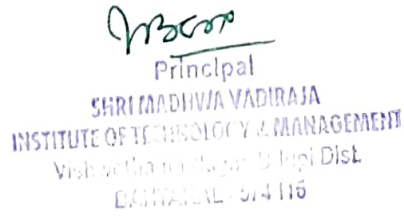 Principal
SHRI MADHWA VADIRAJA
INSTITUTE OF TECHNOLOGY & MANAGEMENT
Udupi Dist.
BANTAKAL - 574 115